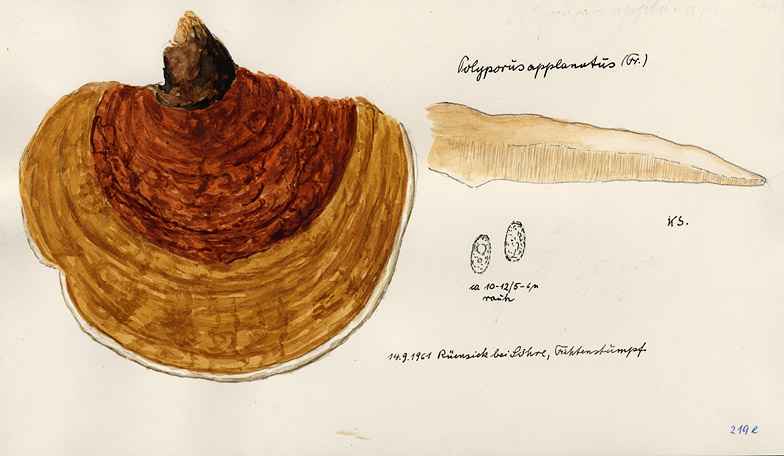 Polyporus applanatus (Fr.)
KS.
ca 10-12/5-6µ
rauh
14.9.1961 bei Löhre, Fichtenstumpf
219e